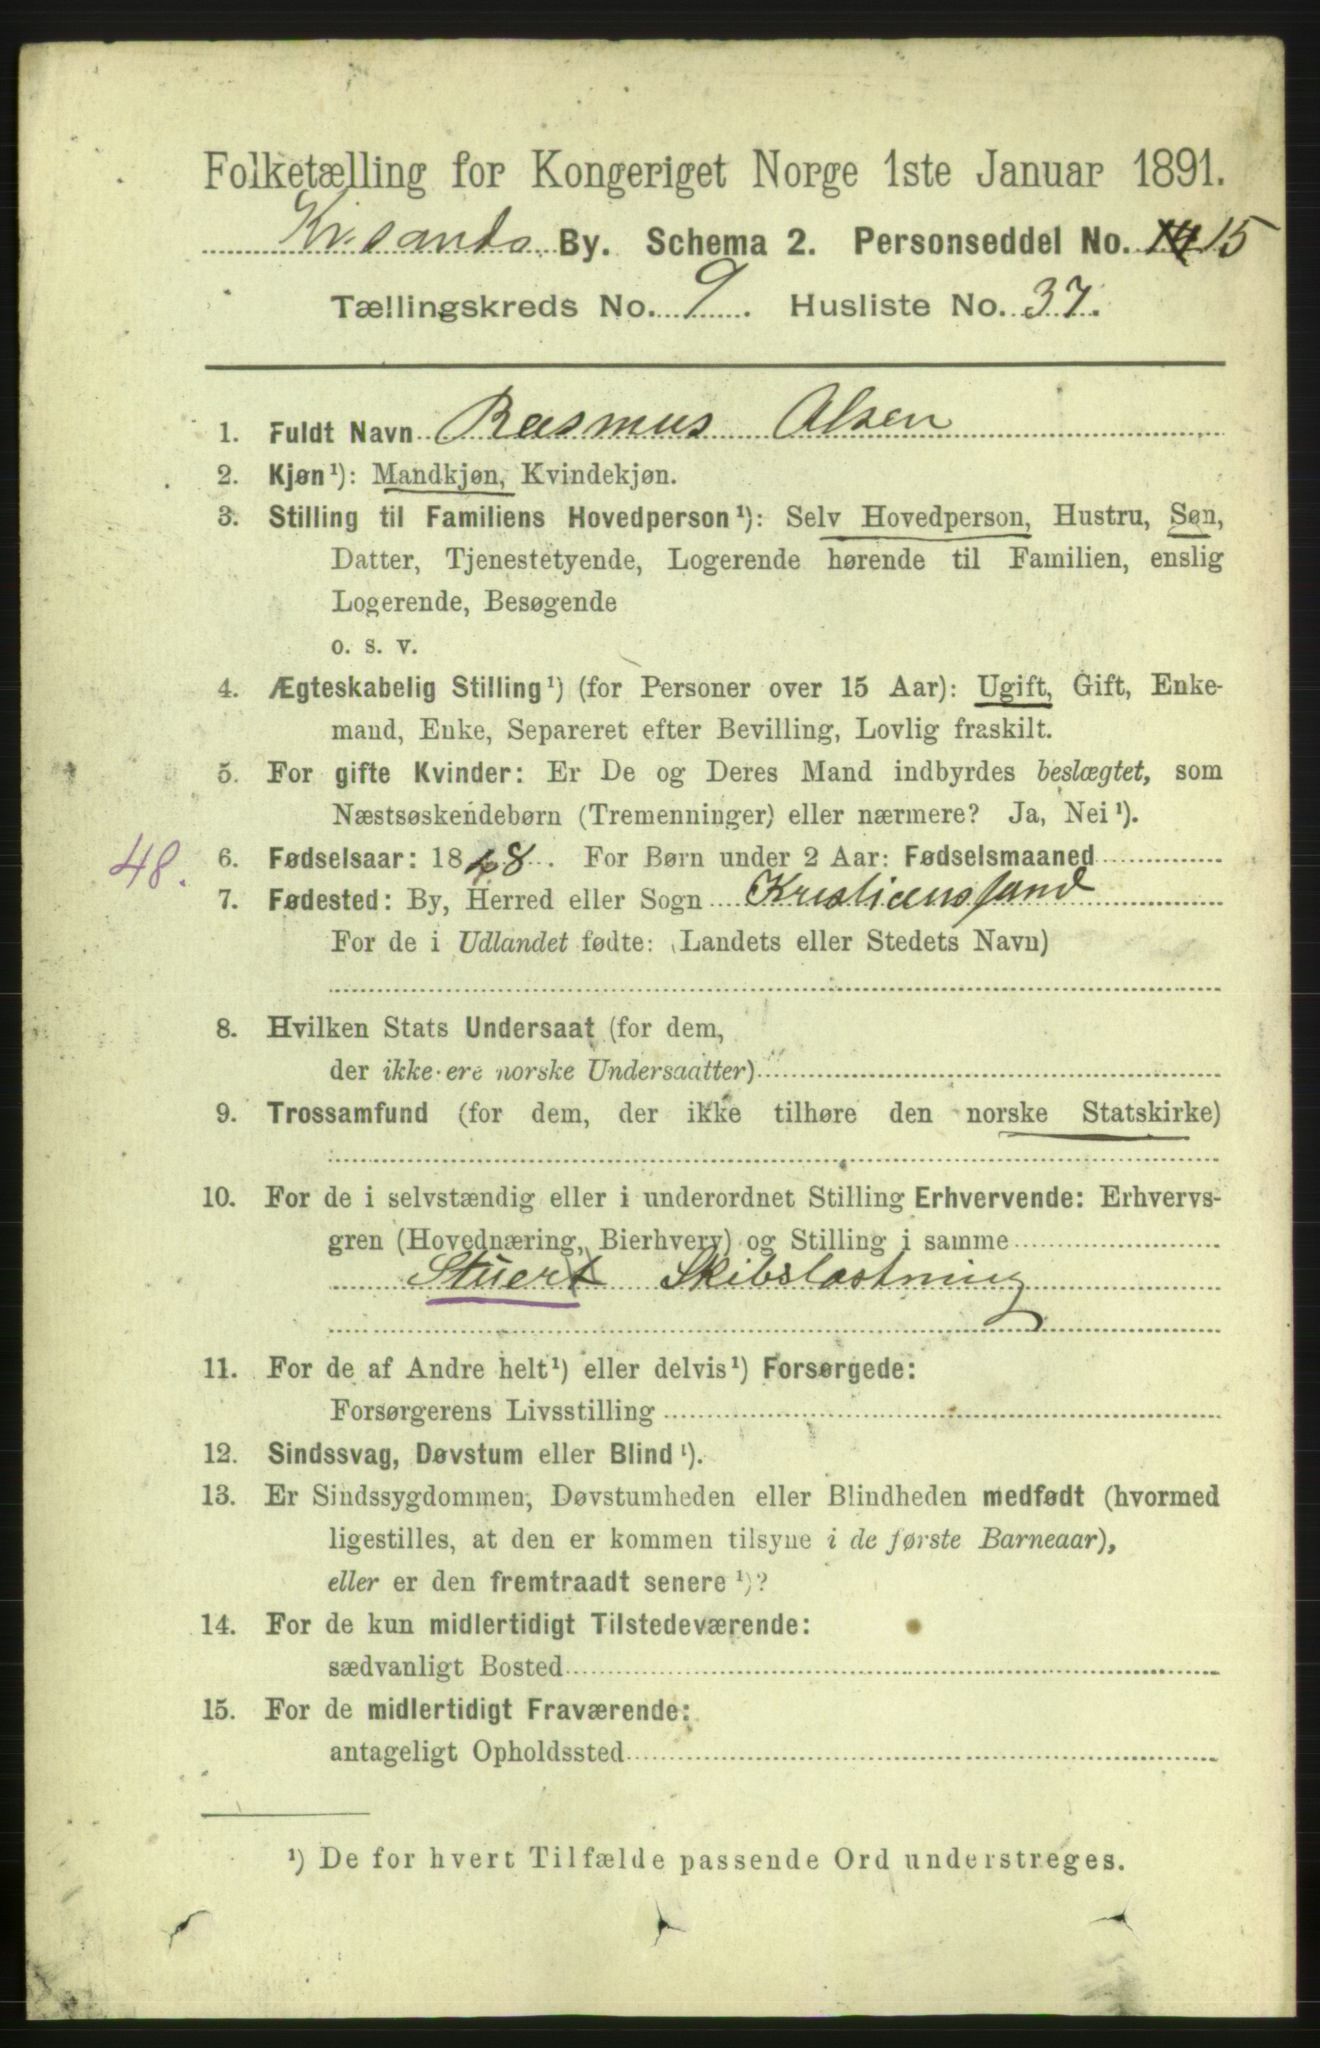 Folketælling for Kongeriget Norge 1ste Januar 1891.
Kr.sands By. Schema 2. Personseddel No. 14 15
Tællingskreds No. 9. Husliste No. 37.
1. Fuldt Navn Rasmus Olsen
2. Kjøn¹): Mandkjøn, Kvindekjøn.
3. Stilling til Familiens Hovedperson¹): Selv Hovedperson, Hustru, Søn,
Datter, Tjenestetyende, Logerende hørende til Familien, enslig
Logerende, Besøgende
o. s. v.
4. Ægteskabelig Stilling¹) (for Personer over 15 Aar): Ugift, Gift, Enke-
mand, Enke, Separeret efter Bevilling, Lovlig fraskilt.
5. For gifte Kvinder: Er De og Deres Mand indbyrdes beslægtet, som
Næstsøskendebørn (Tremenninger) eller nærmere? Ja, Nei¹).
48. 6. Fødselsaar: 1848. For Børn under 2 Aar: Fødselsmaaned
7. Fødested: By, Herred eller Sogn Kristianssand
For de i Udlandet fødte: (Landets eller Stedets Navn)
8. Hvilken Stats Undersaat (for dem,
der ikke ere norske Undersaatter)
9. Trossamfund (for dem, der ikke tilhøre den norske Statskirke)
10. For de i selvstændig eller i underordnet Stilling Erhvervende: Erhvervs-
gren (Hovednæring, Bierhverv) og Stilling i samme
Stuert Skibslastning
11. For de af Andre helt¹) eller delvis¹) Forsørgede:
Forsørgerens Livsstilling
12. Sindssvag, Døvstum eller Blind¹).
13. Er Sindssygdommen, Døvstumheden eller Blindheden medfødt (hvormed
ligestilles, at den er kommen tilsyne i de første Barneaar),
eller er den fremtraadt senere¹)?
14. For de kun midlertidigt Tilstedeværende:
sædvanligt Bosted
15. For de midlertidigt Fraværende:
antageligt Opholdssted
¹) De for hvert Tilfælde passende Ord understreges.